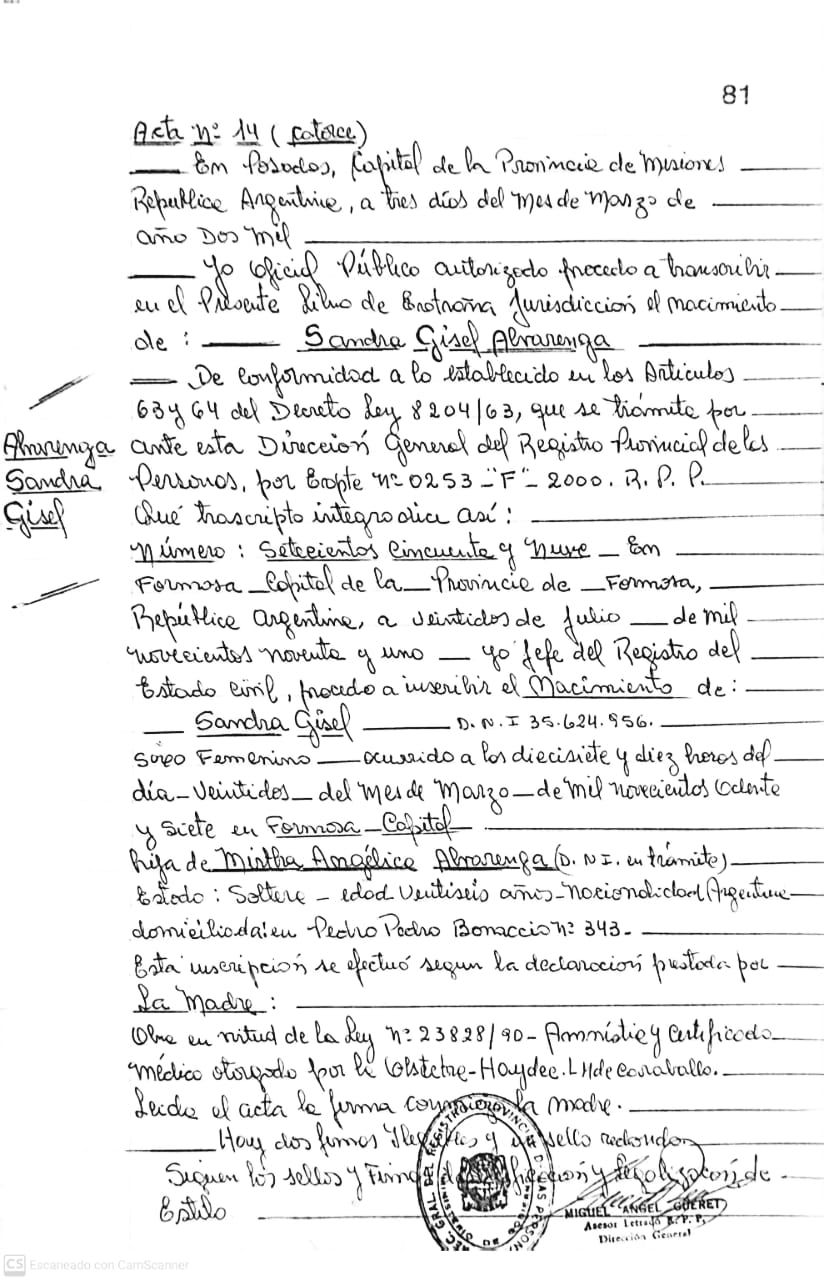 81
Acta Nº 14 (Catorce)
En Posadas, Capital de la Provincia de Misiones
República Argentina, a tres días del Mes de Marzo de
año Dos Mil
Yo Oficial Público autorizado procedo a transcribir
en el Presente Libro de Extraña Jurisdiccion el nacimiento
de: Sandra Gisel Alvarenga
De Conformidad a lo establecido en los Articulos
63 y 64 del Decreto Ley 8204/63, que se trámite por
Alvarenga Sandra Gisel
ante esta Direccion General del Registro Provincial de las
Personas, por Expte Nº 0253 - "F" - 2000. R. P. P.
Qué trascripto integro dice así:
Número: Setecientos Cincuenta y Nueve - En
Formosa - Capital de la - Provincia de - Formosa,
República Argentina, a Veintidos de Julio - de mil
novecientos noventa y uno - yo Jefe del Registro del
Estado Civil, procedo a inscribir el Nacimiento de:
Sandra Gisel D.N.I 35.624.956.
Sexo Femenino - ocurrido a los diecisiete y diez horas del
día - Veintidos - del Mes de Marzo - de Mil novecientos Ochenta
y Siete en Formosa - Capital
hija de Mirtha Angélica Alvarenga (D. N I. en trámite)
Estado: Soltera - edad Ventiseis años - Nacionalidad Argentina
domiciliada: en Pedro Pedro Bonaccio nº 343.-
Esta inscripción se efectuó segun la declaración prestada por
La Madre:
Obra en virtud de la Ley Nº 23828/90 - Amnistia y Certificado
Médico otorgado por la Obstetra - Haydee. L H de Caraballo.
Leida el acta la firma conmigo la madre.
Hay dos firmas Ilegibles y un sello redondo
Siguen los sellos y Firmas de Certificación y Legalización de
Estilo
MIGUEL ANGEL GUERET
Asesor Letrado R. P. P.
Dirección General
CS Escaneado con CamScanner